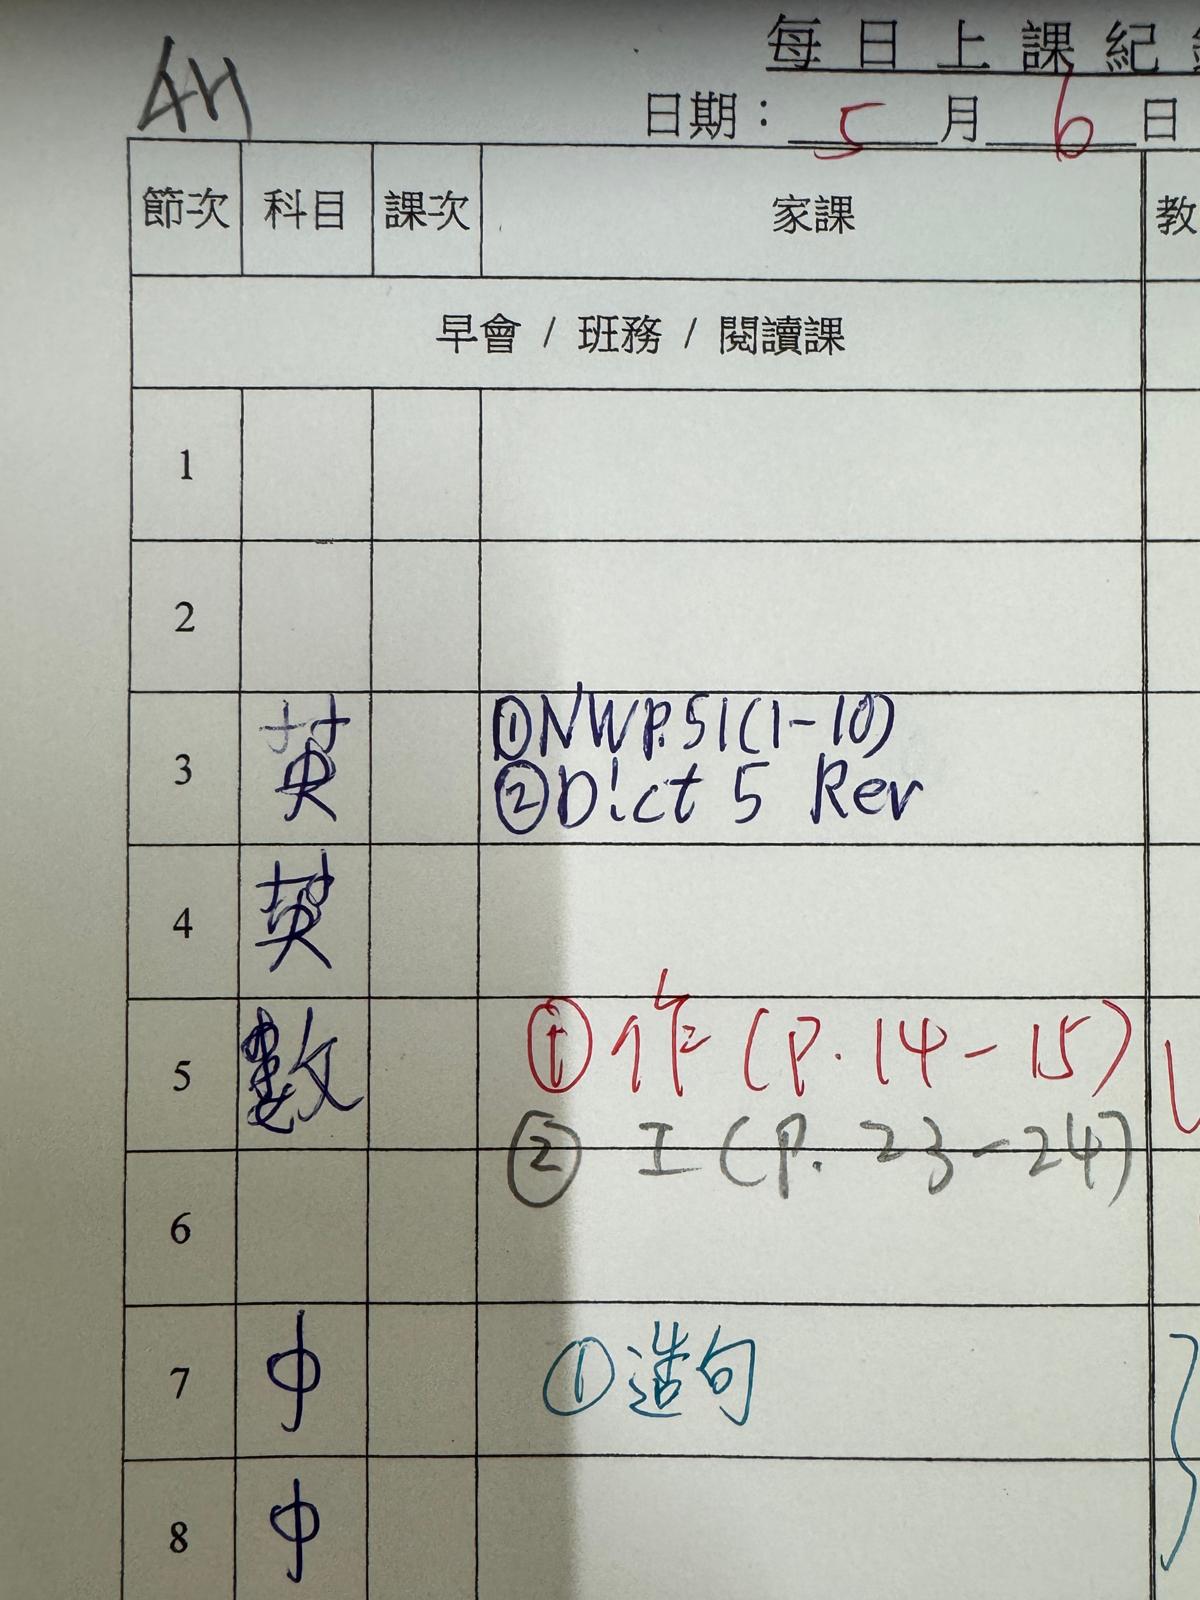 4H
每日上課紀
日期：5月6日
節次 科目 課次 家課 教
早會 / 班務 / 閱讀課
1
2
3 英 ①NWP.51(1-10)
②Dict 5 Rev
4 英
5 數 ①作(p.14-15)
②工(p.23-24)
6
7 中 ①造句
8 中